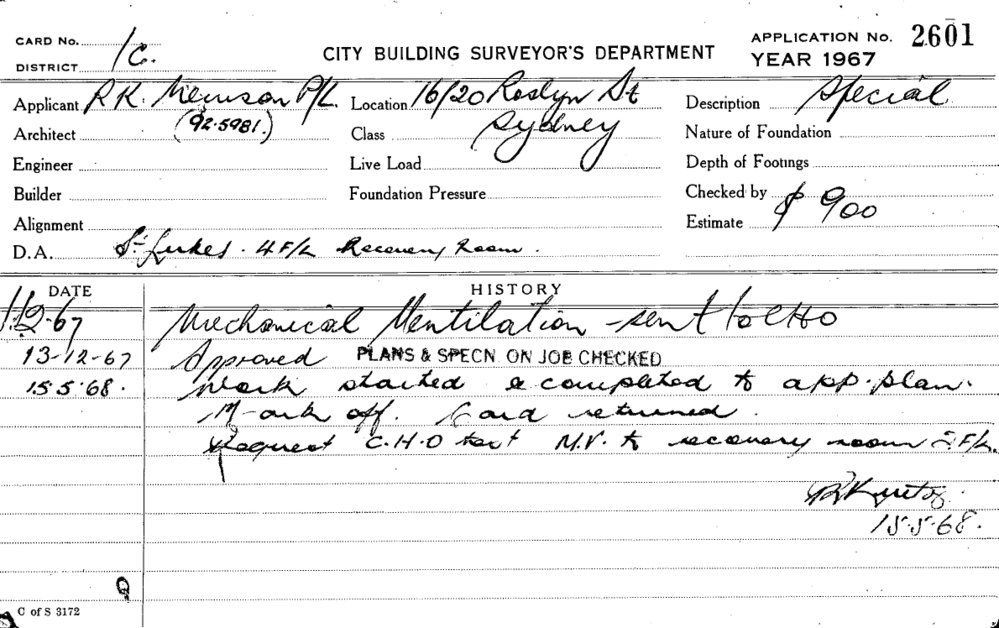 CARD No. 1C.
DISTRICT
CITY BUILDING SURVEYOR'S DEPARTMENT
APPLICATION No. 2601
YEAR 1967
Applicant R.K. P/L.
(92.5981.)
Architect
Engineer
Builder
Alignment
D.A. St Lukes. 4 F/L Recovery Room.
Location 16/20 Roslyn St
Sydney
Class
Live Load
Foundation Pressure
Description Special
Nature of Foundation
Depth of Footings
Checked by
Estimate $ 900
DATE HISTORY
1.12.67 Mechanical Ventilation - sent to CHO
13-12-67 Approved PLANS & SPECN. ON JOB CHECKED
15.5.68. Work started & completed to app. plan.
Mark off. Card returned.
Request C.H.O test M.V. to recovery room 2 F/L.
15.5.68.
C of S 3172